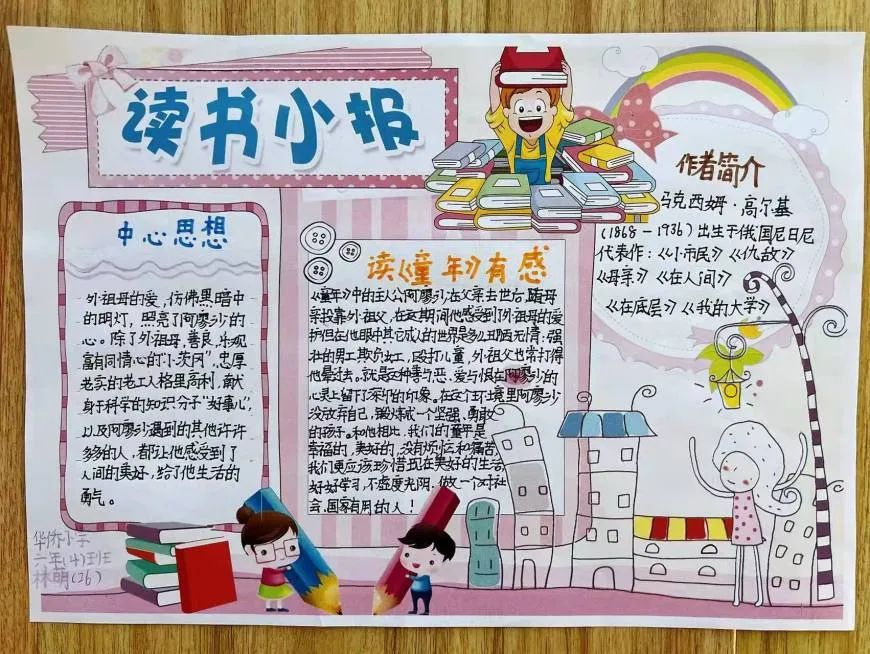 读书小报
中心思想
外祖母的爱,仿佛黑暗中
的明灯,照亮了阿廖沙的
心。除了外祖母,善良、乐观
富有同情心的“小茨冈”,忠厚
老实的老工人格里高利,献
身于科学的知识分子“好事儿”
以及阿廖沙遇到的其他许许
多多的人,都让他感受到了
人间的美好,给了他生活的
勇气。
读《童年》有感
《童年》中的主人公阿廖沙在父亲去世后,随母
亲投靠外祖父,在这期间他感受到了外祖母的爱
护但在他眼中其它成人的世界是多么丑陋无情:强
壮的男工欺负女工,殴打儿童,外祖父也常打得
他晕过去。就是这种善与恶、爱与恨在阿廖沙的
心灵上留下了深深的印象。在这个环境里阿廖沙
没放弃自己,锻炼成一个坚强、勇敢
的孩子。和他相比,我们的童年是
幸福的,美好的,没有烦恼和痛苦,
我们更应该珍惜现在美好的生活,
好好学习,不虚度光阴,做一个对社
会、国家有用的人!
作者简介
马克西姆·高尔基
(1868-1936)出生于俄国尼日尼
代表作:《小市民》《仇敌》
《母亲》《在人间》
《在底层》《我的大学》
华侨小学
六年(4)班
林明(26)